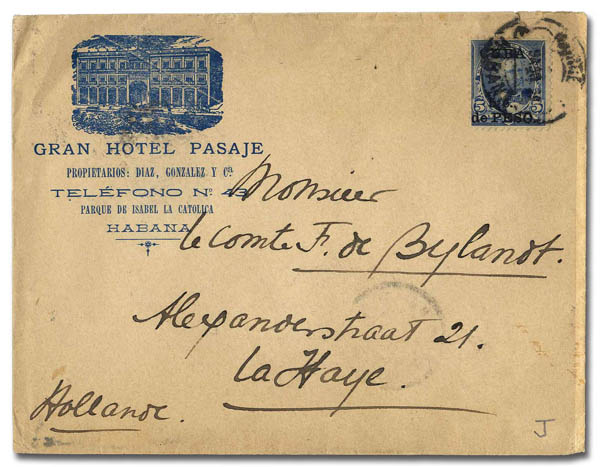 GRAN HOTEL PASAJE
PROPIETARIOS: DIAZ, GONZALEZ Y Cª
TELÉFONO Nº 43
PARQUE DE ISABEL LA CATOLICA
HABANA
5 5
de PESO.
Monsieur
le Comte F. de Bylandt.
Alexanderstraat 21.
la Haye.
Hollande.
J